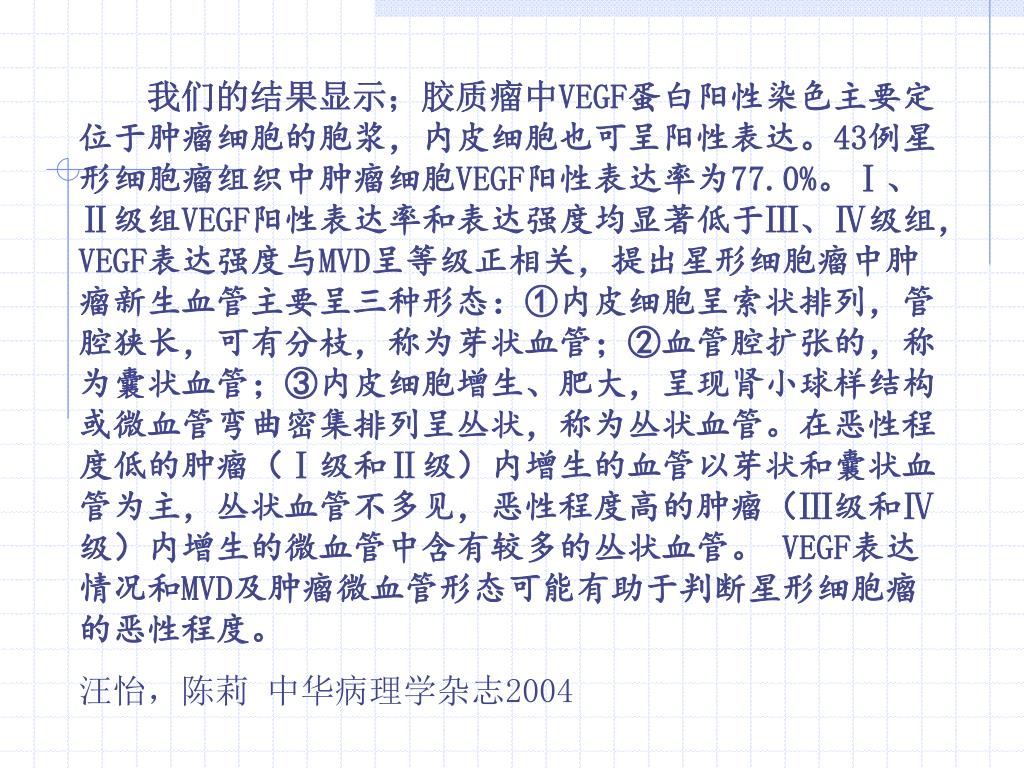 我们的结果显示；胶质瘤中VEGF蛋白阳性染色主要定
位于肿瘤细胞的胞浆，内皮细胞也可呈阳性表达。43例星
形细胞瘤组织中肿瘤细胞VEGF阳性表达率为77.0%。Ⅰ、
Ⅱ级组VEGF阳性表达率和表达强度均显著低于Ⅲ、Ⅳ级组，
VEGF表达强度与MVD呈等级正相关，提出星形细胞瘤中肿
瘤新生血管主要呈三种形态：①内皮细胞呈索状排列，管
腔狭长，可有分枝，称为芽状血管；②血管腔扩张的，称
为囊状血管；③内皮细胞增生、肥大，呈现肾小球样结构
或微血管弯曲密集排列呈丛状，称为丛状血管。在恶性程
度低的肿瘤（Ⅰ级和Ⅱ级）内增生的血管以芽状和囊状血
管为主，丛状血管不多见，恶性程度高的肿瘤（Ⅲ级和Ⅳ
级）内增生的微血管中含有较多的丛状血管。 VEGF表达
情况和MVD及肿瘤微血管形态可能有助于判断星形细胞瘤
的恶性程度。
汪怡，陈莉 中华病理学杂志2004